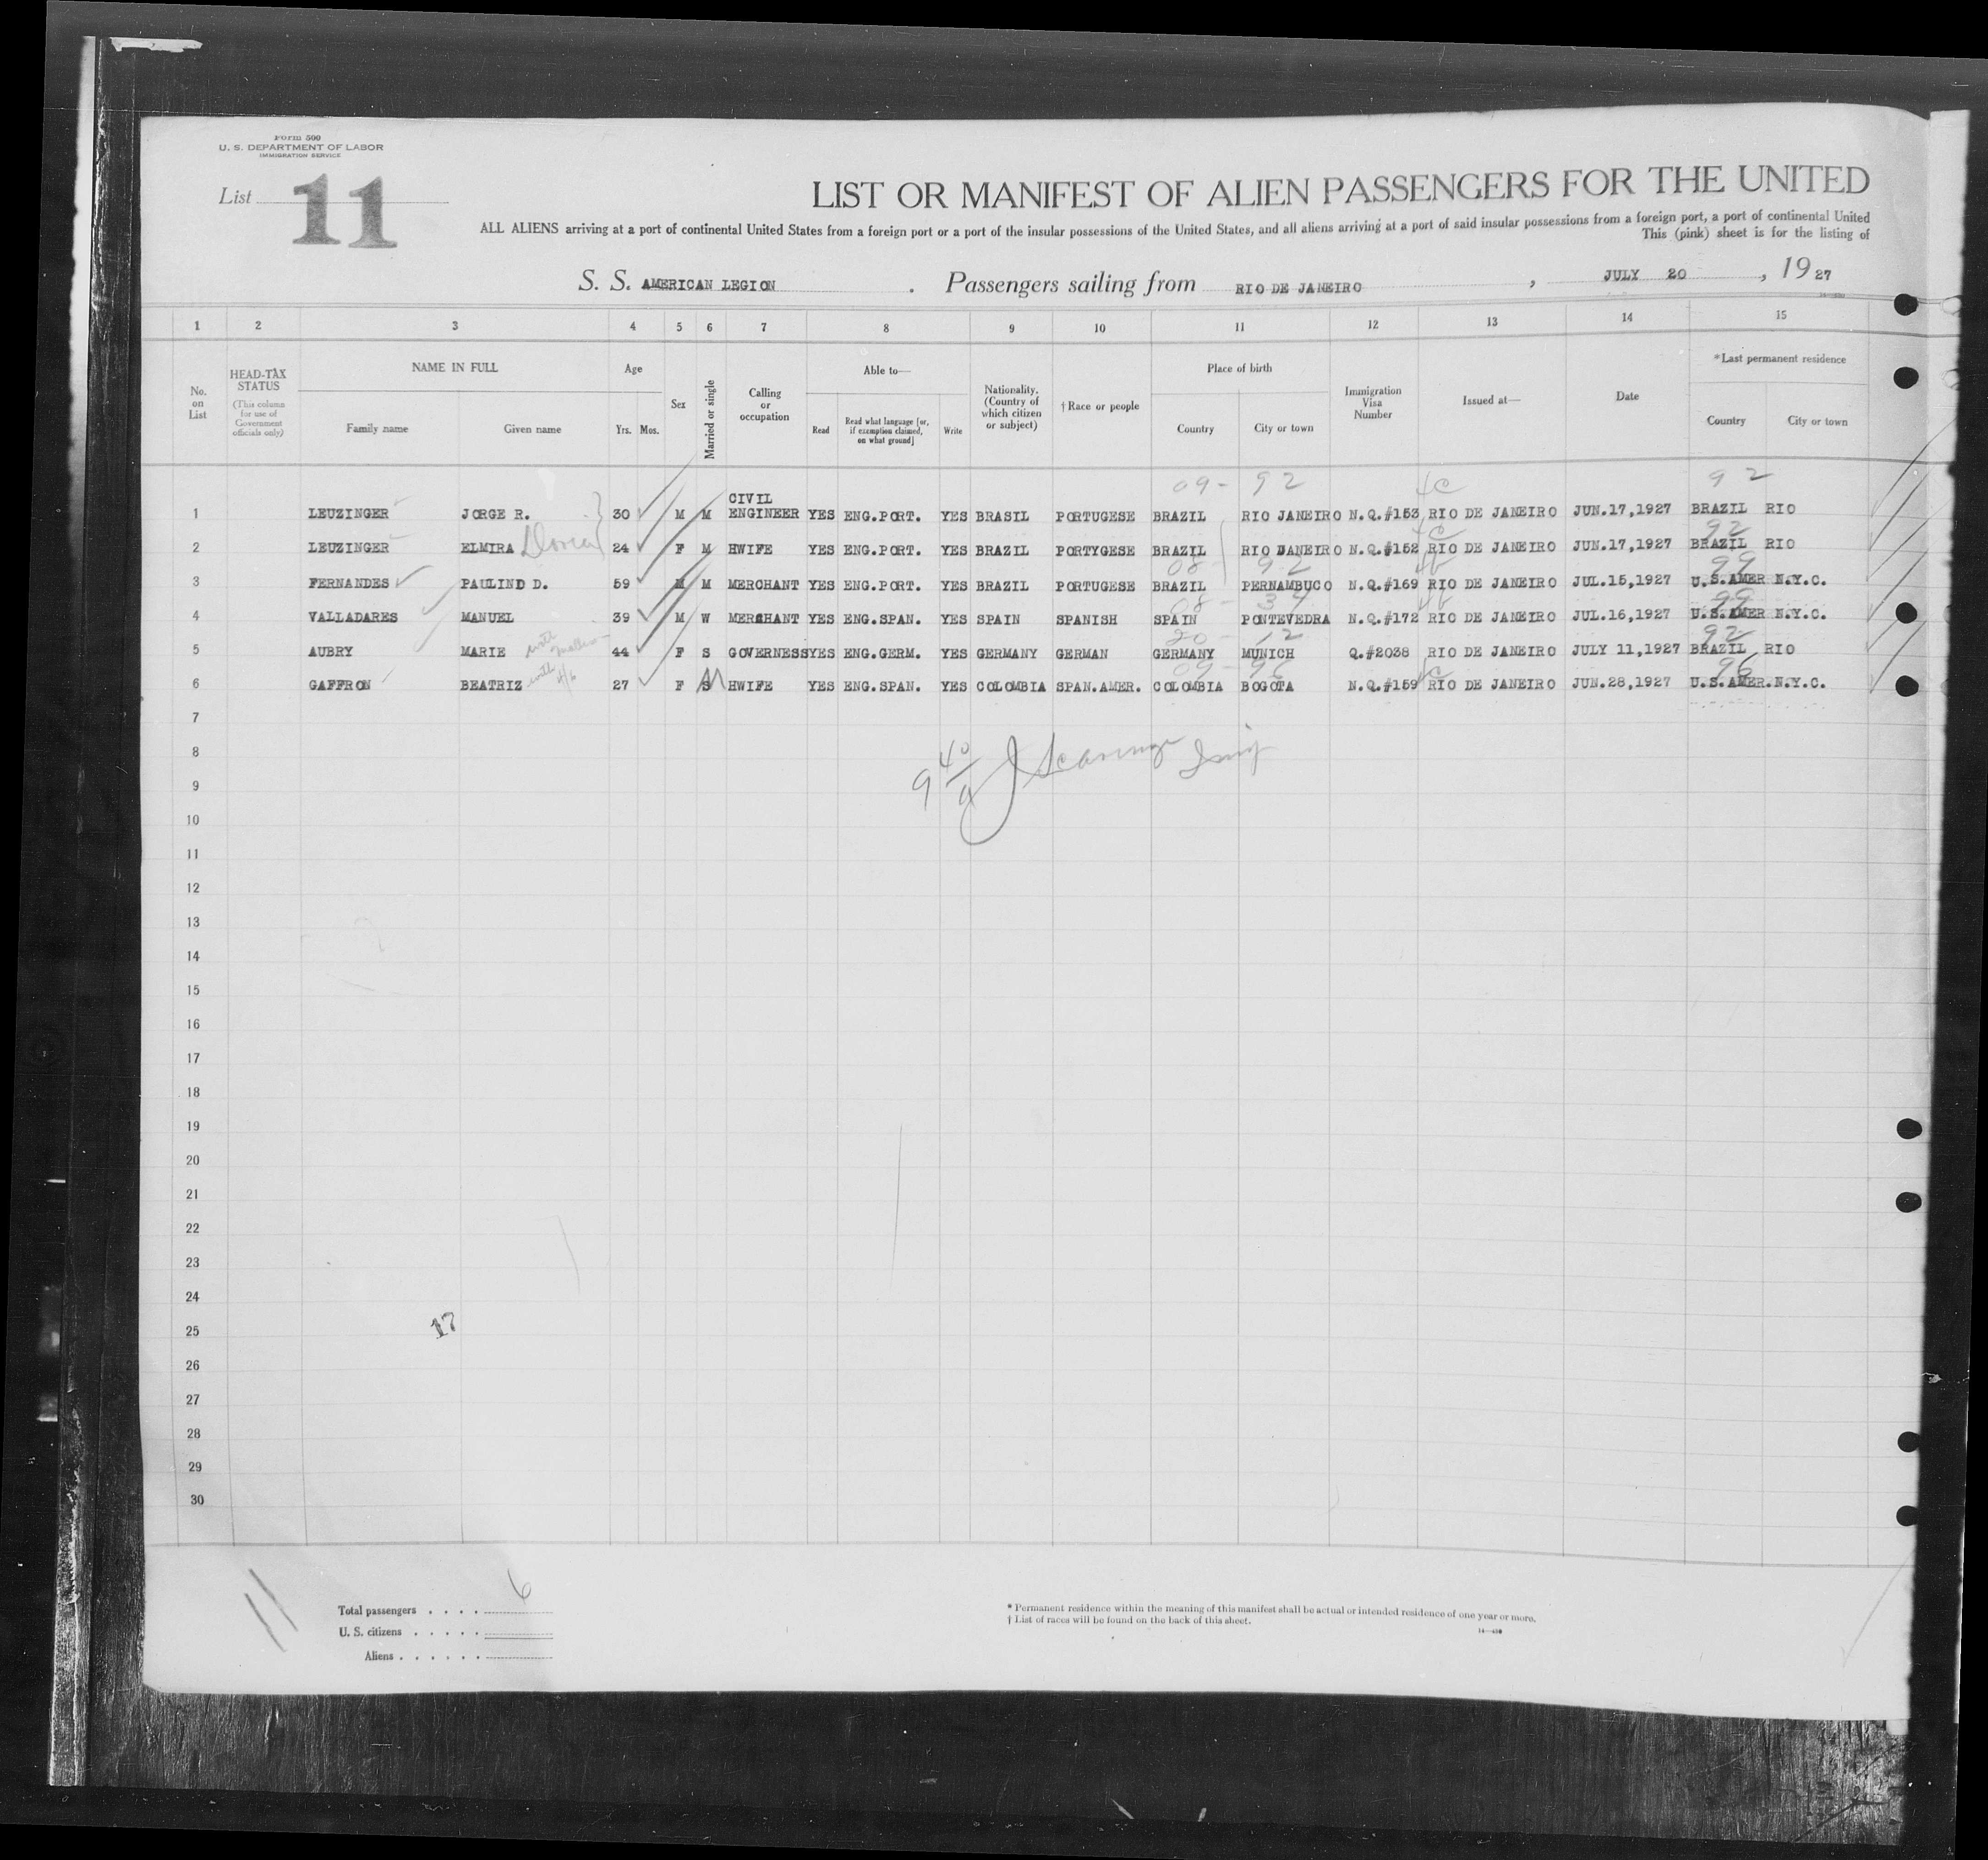 Form 500
U. S. DEPARTMENT OF LABOR
IMMIGRATION SERVICE
List 11
LIST OR MANIFEST OF ALIEN PASSENGERS FOR THE UNITED
ALL ALIENS arriving at a port of continental United States from a foreign port or a port of the insular possessions of the United States, and all aliens arriving at a port of said insular possessions from a foreign port, a port of continental United
This (pink) sheet is for the listing of
S. S. AMERICAN LEGION . Passengers sailing from RIO DE JANEIRO , JULY 20 , 1927
1 2 3 4 5 6 7 8 9 10 11 12 13 14 15
No. on List
HEAD-TAX STATUS (This column for use of Government officials only)
NAME IN FULL
Family name Given name
Age
Yrs. Mos.
Sex
Married or single
Calling or occupation
Able to—
Read
Read what language [or, if exemption claimed, on what ground]
Write
Nationality. (Country of which citizen or subject)
†Race or people
Place of birth
Country City or town
Immigration Visa Number
Issued at—
Date
*Last permanent residence
Country City or town
09- 92 4C 92
1 LEUZINGER JORGE R. 30 M M CIVIL ENGINEER YES ENG.PORT. YES BRASIL PORTUGESE BRAZIL RIO JANEIRO N.Q.#153 RIO DE JANEIRO JUN.17,1927 BRAZIL RIO
4C 92
2 LEUZINGER ELMIRA 24 F M HWIFE YES ENG.PORT. YES BRAZIL PORTYGESE BRAZIL RIO JANEIRO N.Q.#152 RIO DE JANEIRO JUN.17,1927 BRAZIL RIO
08- 92 99
3 FERNANDES PAULIND D. 59 M M MERCHANT YES ENG.PORT. YES BRAZIL PORTUGESE BRAZIL PERNAMBUCO N.Q.#169 RIO DE JANEIRO JUL.15,1927 U.S.AMER N.Y.C.
08- 34 99
4 VALLADARES MANUEL 39 M W MERCHANT YES ENG.SPAN. YES SPAIN SPANISH SPAIN PONTEVEDRA N.Q.#172 RIO DE JANEIRO JUL.16,1927 U.S.AMER N.Y.C.
20- 12 92
5 AUBRY MARIE 44 F S GOVERNESS YES ENG.GERM. YES GERMANY GERMAN GERMANY MUNICH Q.#2038 RIO DE JANEIRO JULY 11,1927 BRAZIL RIO
09- 96 96
6 GAFFRON BEATRIZ 27 F S M HWIFE YES ENG.SPAN. YES COLOMBIA SPAN.AMER. COLOMBIA BOGOTA N.Q.#159 RIO DE JANEIRO JUN.28,1927 U.S.AMER.N.Y.C.
7
8
9
10
11
12
13
14
15
16
17
18
19
20
21
22
23
24
25
17
26
27
28
29
30
11
Total passengers . . . . 6
U. S. citizens . . . . .
Aliens . . . . . .
* Permanent residence within the meaning of this manifest shall be actual or intended residence of one year or more.
† List of races will be found on the back of this sheet.